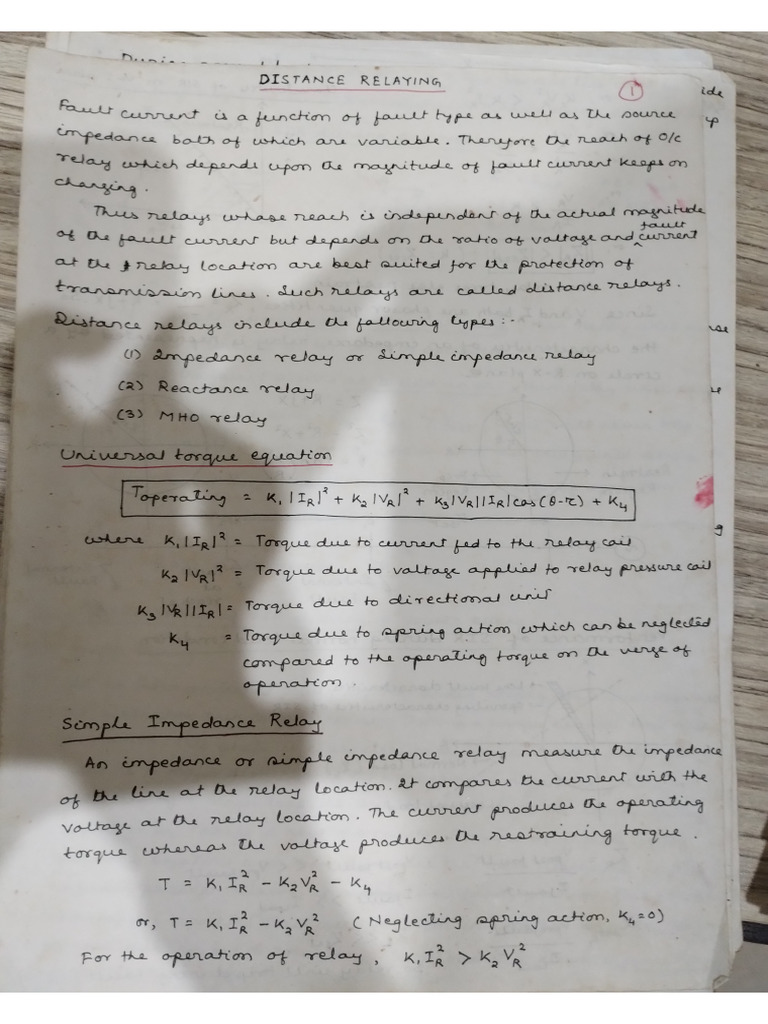 DISTANCE RELAYING
1
Fault current is a function of fault type as well as the source
impedance both of which are variable. Therefore the reach of O/C
relay which depends upon the magnitude of fault current keeps on
changing.
Thus relays whose reach is independent of the actual magnitude
of the fault current but depends on the ratio of voltage and fault current
at the relay location are best suited for the protection of
transmission lines. Such relays are called distance relays.
Distance relays include the following types:-
(1) Impedance relay or Simple impedance relay
(2) Reactance relay
(3) MHO relay
Universal torque equation
Toperating = K₁|I_R|² + K₂|V_R|² + K₃|V_R||I_R|cos(θ-τ) + K₄
where K₁|I_R|² = Torque due to current fed to the relay coil
K₂|V_R|² = Torque due to voltage applied to relay pressure coil
K₃|V_R||I_R| = Torque due to directional unit
K₄ = Torque due to spring action which can be neglected
compared to the operating torque on the verge of
operation.
Simple Impedance Relay
An impedance or simple impedance relay measure the impedance
of the line at the relay location. It compares the current with the
voltage at the relay location. The current produces the operating
torque whereas the voltage produces the restraining torque.
T = K₁I_R² - K₂V_R² - K₄
or, T = K₁I_R² - K₂V_R² (Neglecting spring action, K₄=0)
For the operation of relay, K₁I_R² > K₂V_R²